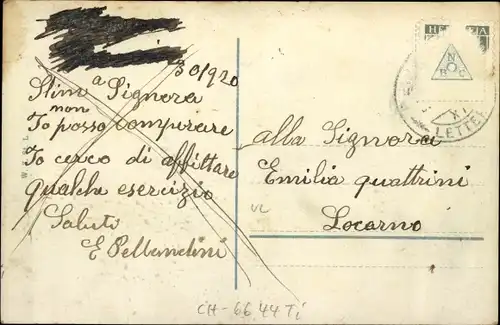 30/9 20
Stim a Signora
non
Io posso comperare
Io cerco di affittare
qualche esercizio
Saluti
E Pellandini
alla Signora
Emilia quattrini
Locarno
HE ZIA
N
B C
XI
LETTE
VL
CH-66 44 Ti